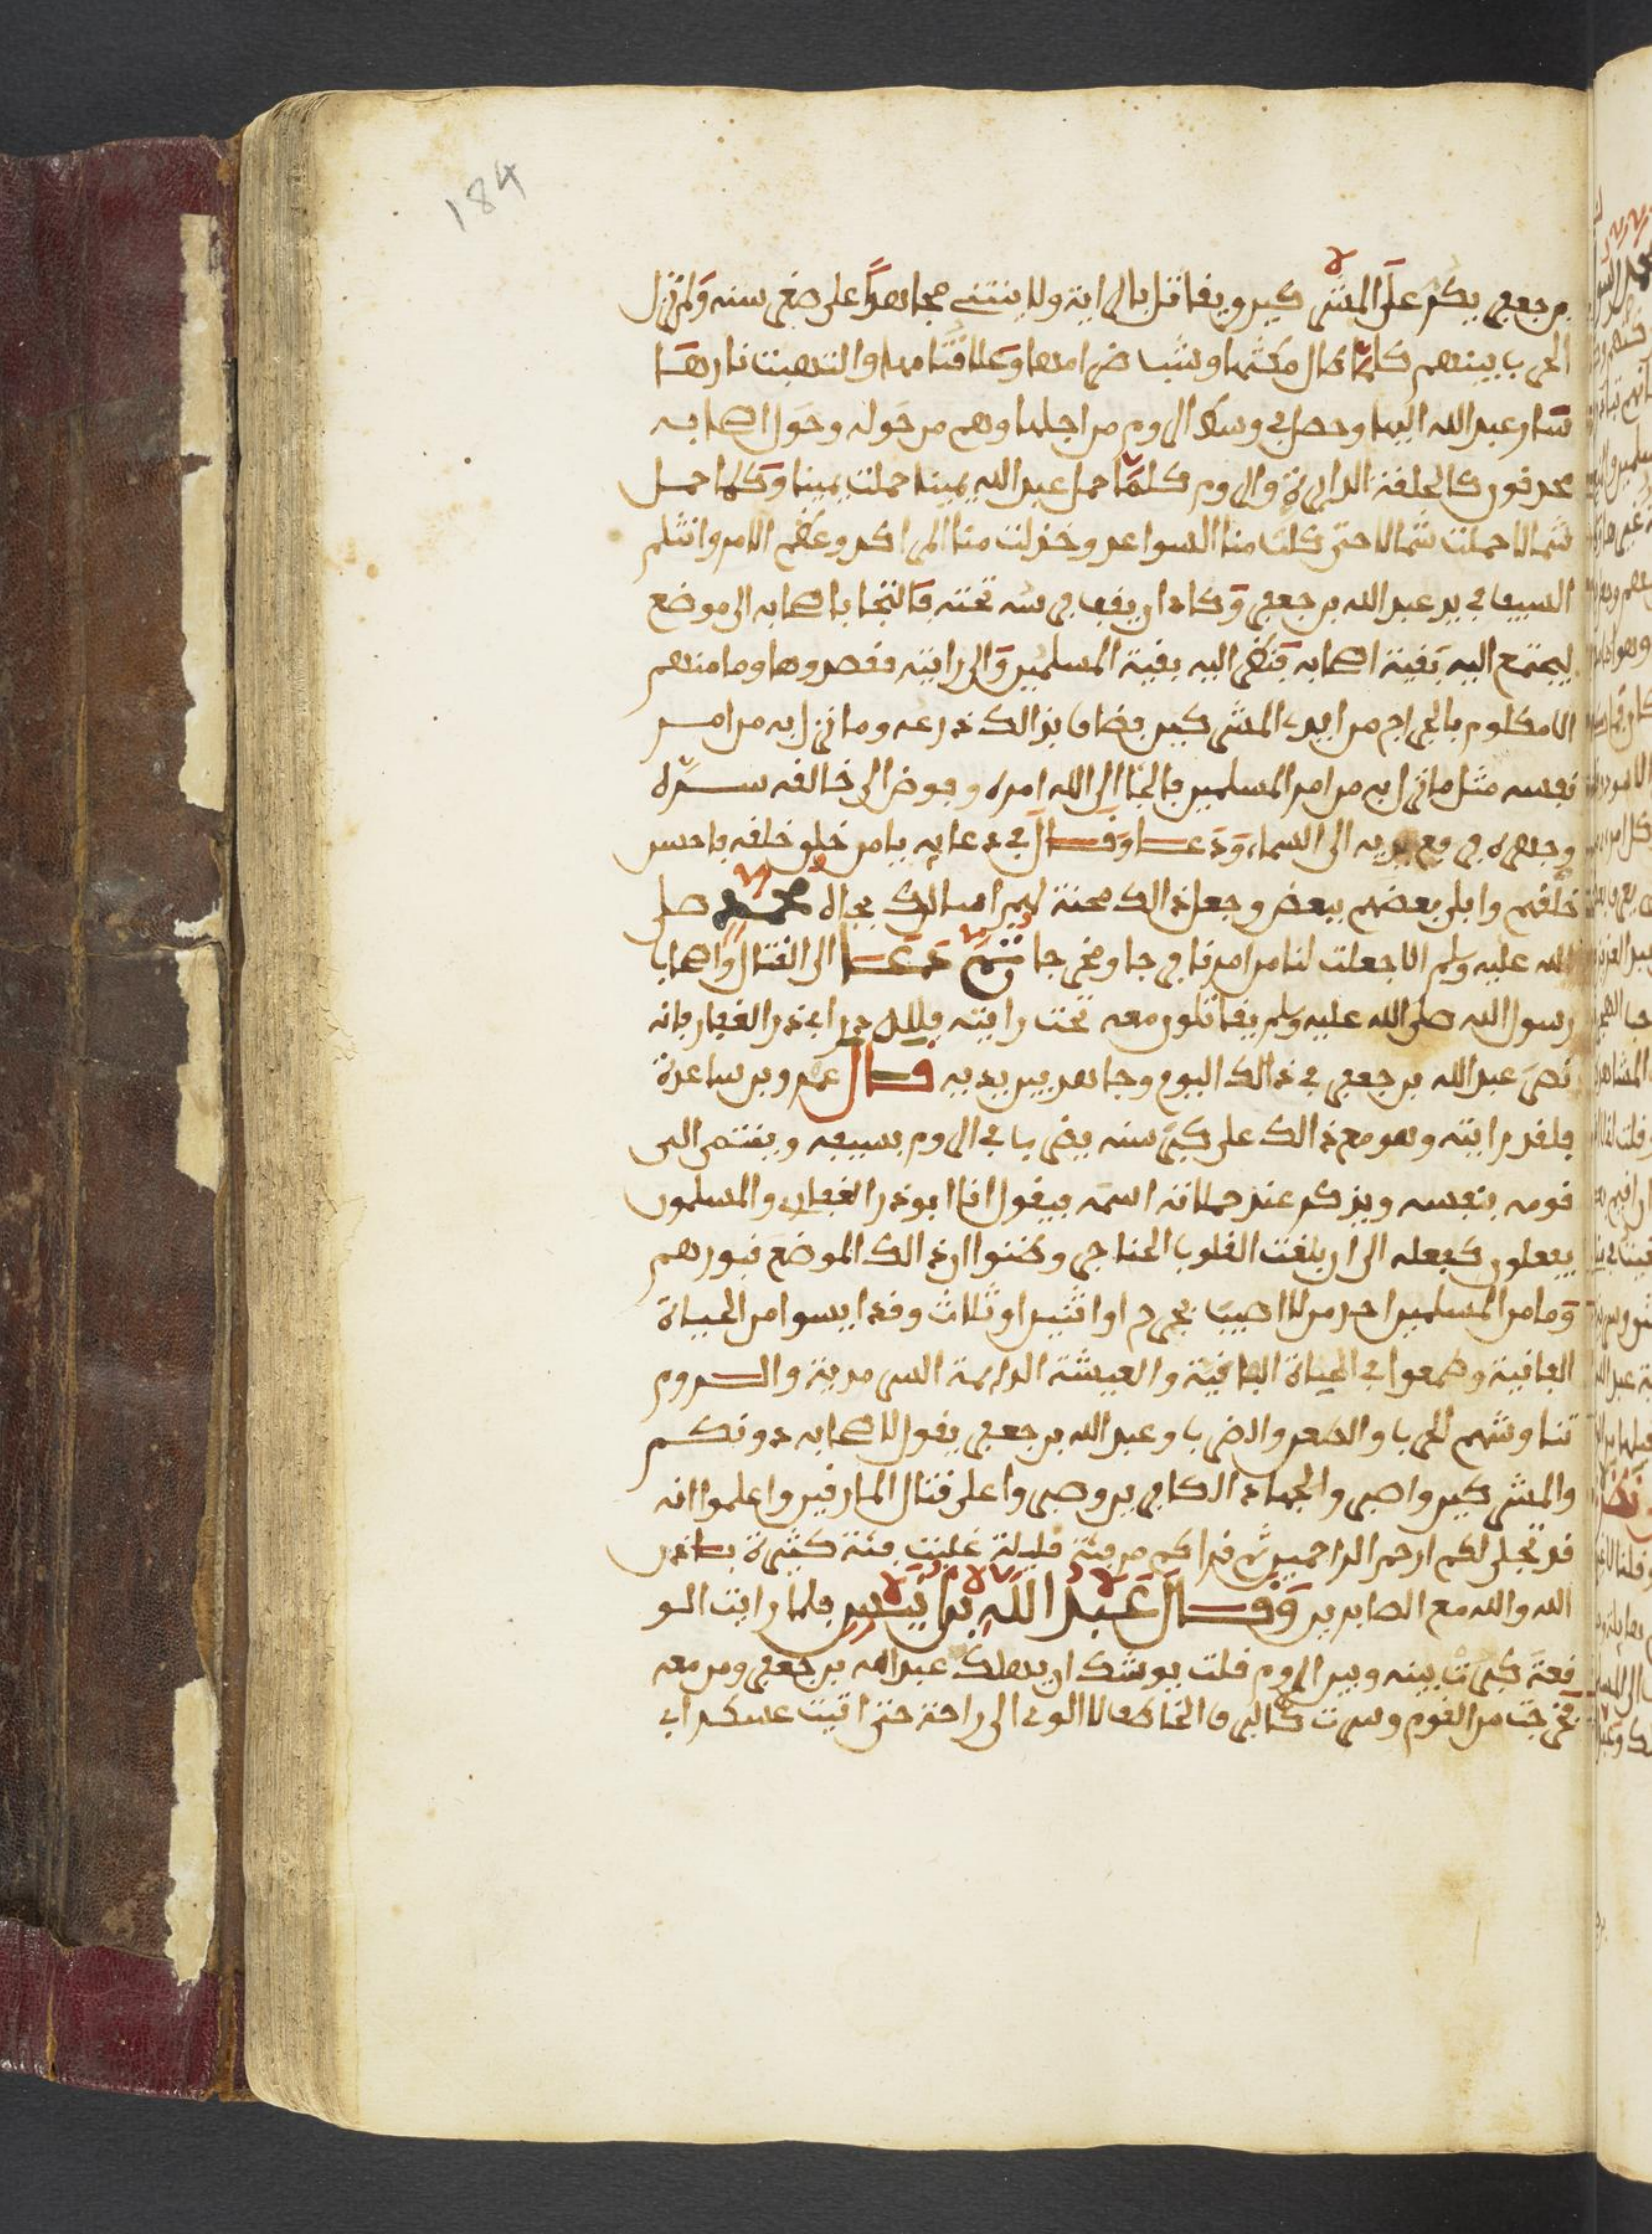 184
بن جعفر يكر على المشركين ويقاتل بالراية ولا ينثنى مجاهدا على صغر سنه ولم تزل
الحرب بينهم كلما طال مكثها وشب ضرامها وعلا قتامها والتهبت نارها
عبد الله اليها وحصل في وسط الروم من اجلها وهم من حوله وحول اصحابه
محدقون كالحلقة الدايرة والروم كلما حمل عبد الله يمينا حملت يمينا وكلما حمل
شمالا حملت شمالا حتى كلت منا السواعد وخذلت منا المراكد وعظم الامر وانثلم
السيف في يد عبد الله بن جعفر وكاد ان يقف فرسه تحته فالتجا باصحابه الى موضع
ليجتمع اليه بقية اصحابه فنظر اليه بقية المسلمين والى رايته فقصدوها وما منهم
الا مكلوم بالجراح من ايدي المشركين فضاق بذالك ذرعه وما نزل به من امر
نفسه مثل ما نزل به من امر المسلمين فالجا الى الله امره وفوض الى خالقه سره
وجهره ورفع يديه الى السماء ودعا وقال في دعايه يا من خلق خلقه فاحسن
خلقهم وابلى بعضهم ببعض وجعل ذالك محنة لهم اسالك بجاه محمد صلى
الله عليه وسلم الا جعلت لنا من امرنا فرجا ومخرجا ثم عاد الى القتال واصحاب
رسول الله صلى الله عليه وسلم يقاتلون معه تحت رايته فلله در ابي ذر الغفار فانه
نصر عبد الله بن جعفر في ذالك اليوم وجاهد بين يديه قال عمرو بن ساعدة
فلقد رايته وهو مع ذالك على كبر سنه يضرب في الروم بسيفه وينتمى الى
قومه بنفسه ويذكر عند حملاته اسمه فيقول انا ابو ذر الغفار والمسلمون
يفعلون كفعله الى ان بلغت القلوب الحناجر وظنوا ان ذالك الموضع قبورهم
وما من المسلمين احد من لا اصيب بجرح او اثنين او ثلاث وقد ايسوا من الحياة
الفانية وطمعوا في الحياة الباقية والعيشة الدايمة السرمدية والروم
تناوشهم الحرب والطعن والضرب وعبد الله بن جعفر يقول لاصحابه دونكم
والمشركين واصبروا لجهاد الكافرين وصبروا على قتال المارقين واعلموا انه
قد تجلى لكم ارحم الراحمين ثم قرا كم من فئة قليلة غلبت فئة كثيرة باذن
الله والله مع الصابرين وقال عبد الله بن انيس فلما رايت الو
قعة كبرت بينه وبين الروم قلت يوشك ان يهلك عبد الله بن جعفر ومن معه
فخرجت من القوم وسرت كالبرق الخاطف لا الوي الى راحة حتى اتيت عسكر ابي